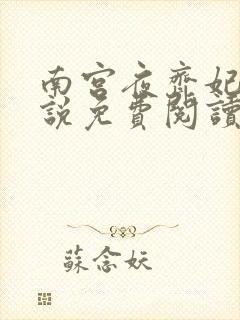 南宫夜齊妃
説免費閱讀
蘇念妖